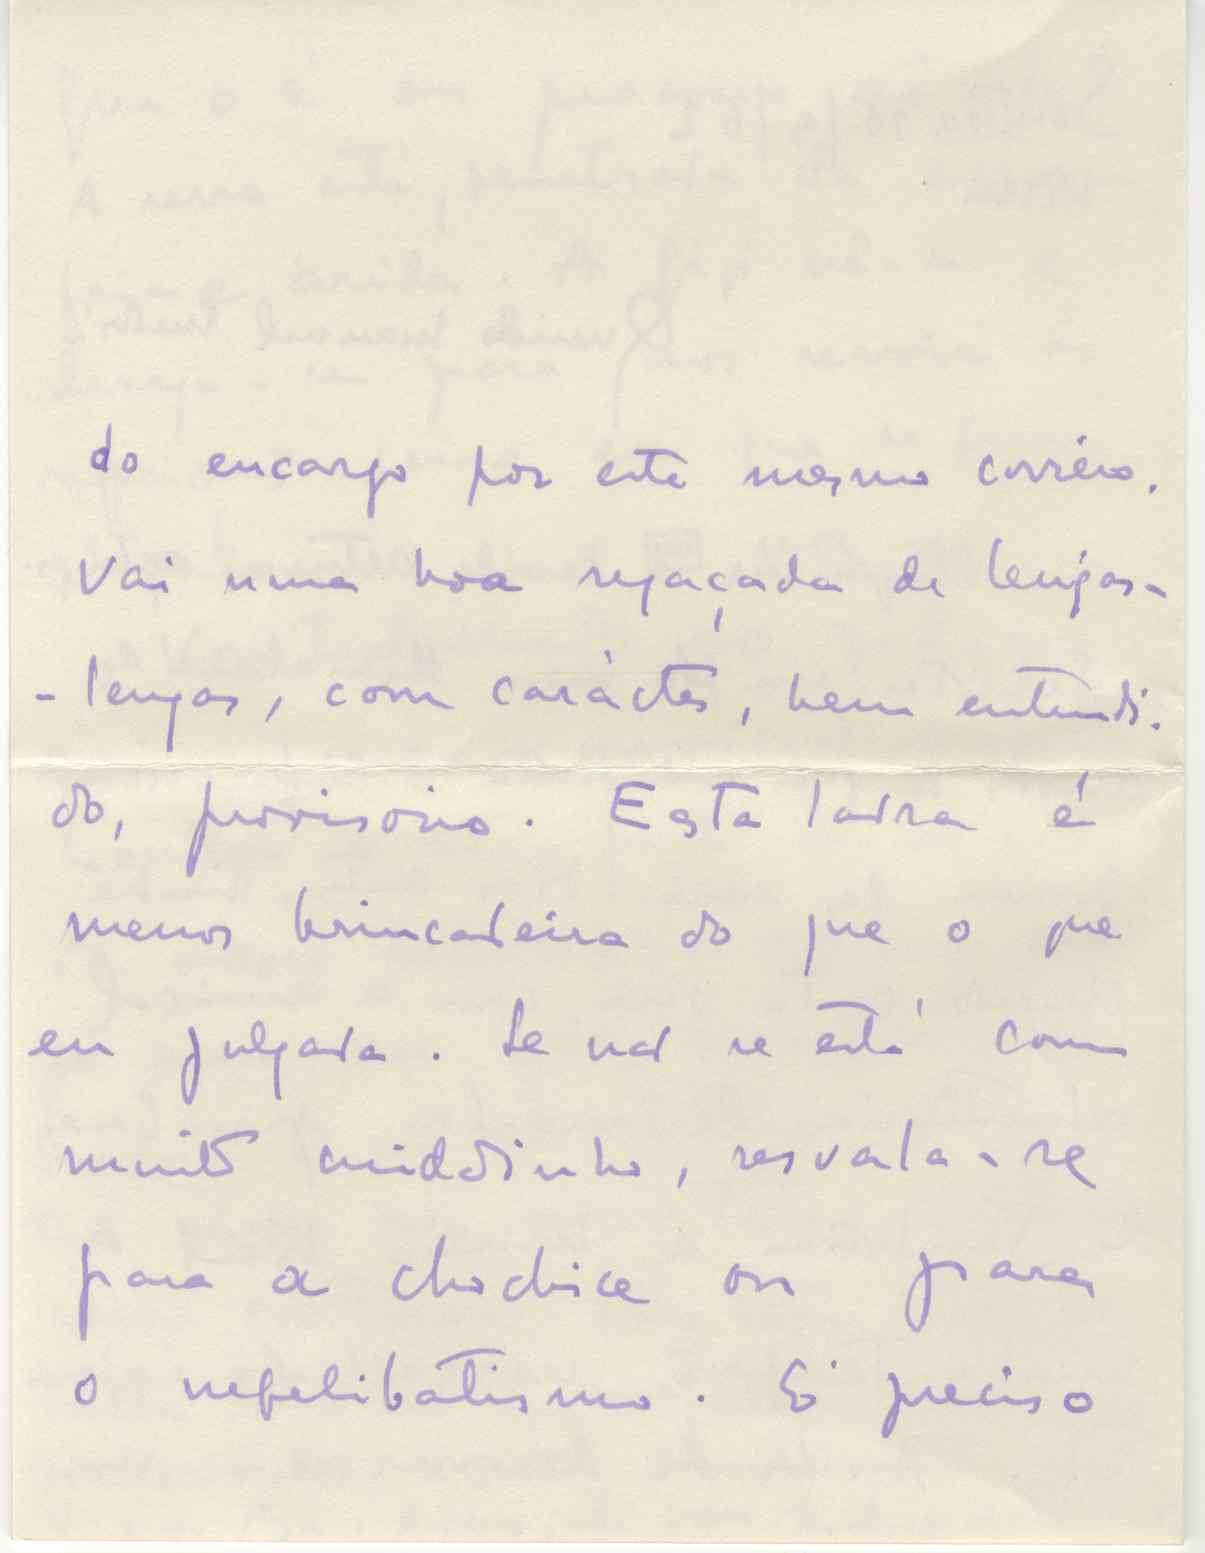 do encargo por este mesmo correio.
Vai uma boa regaçada de lengas-
-lengas, com carácter, bem entendi-
do, provisório. Esta lavra é
menos brincadeira do que o que
eu julgava. Se não se está com
muito cuidadinho, resvala-se
para a chochice ou para
o nefelibatismo. É preciso